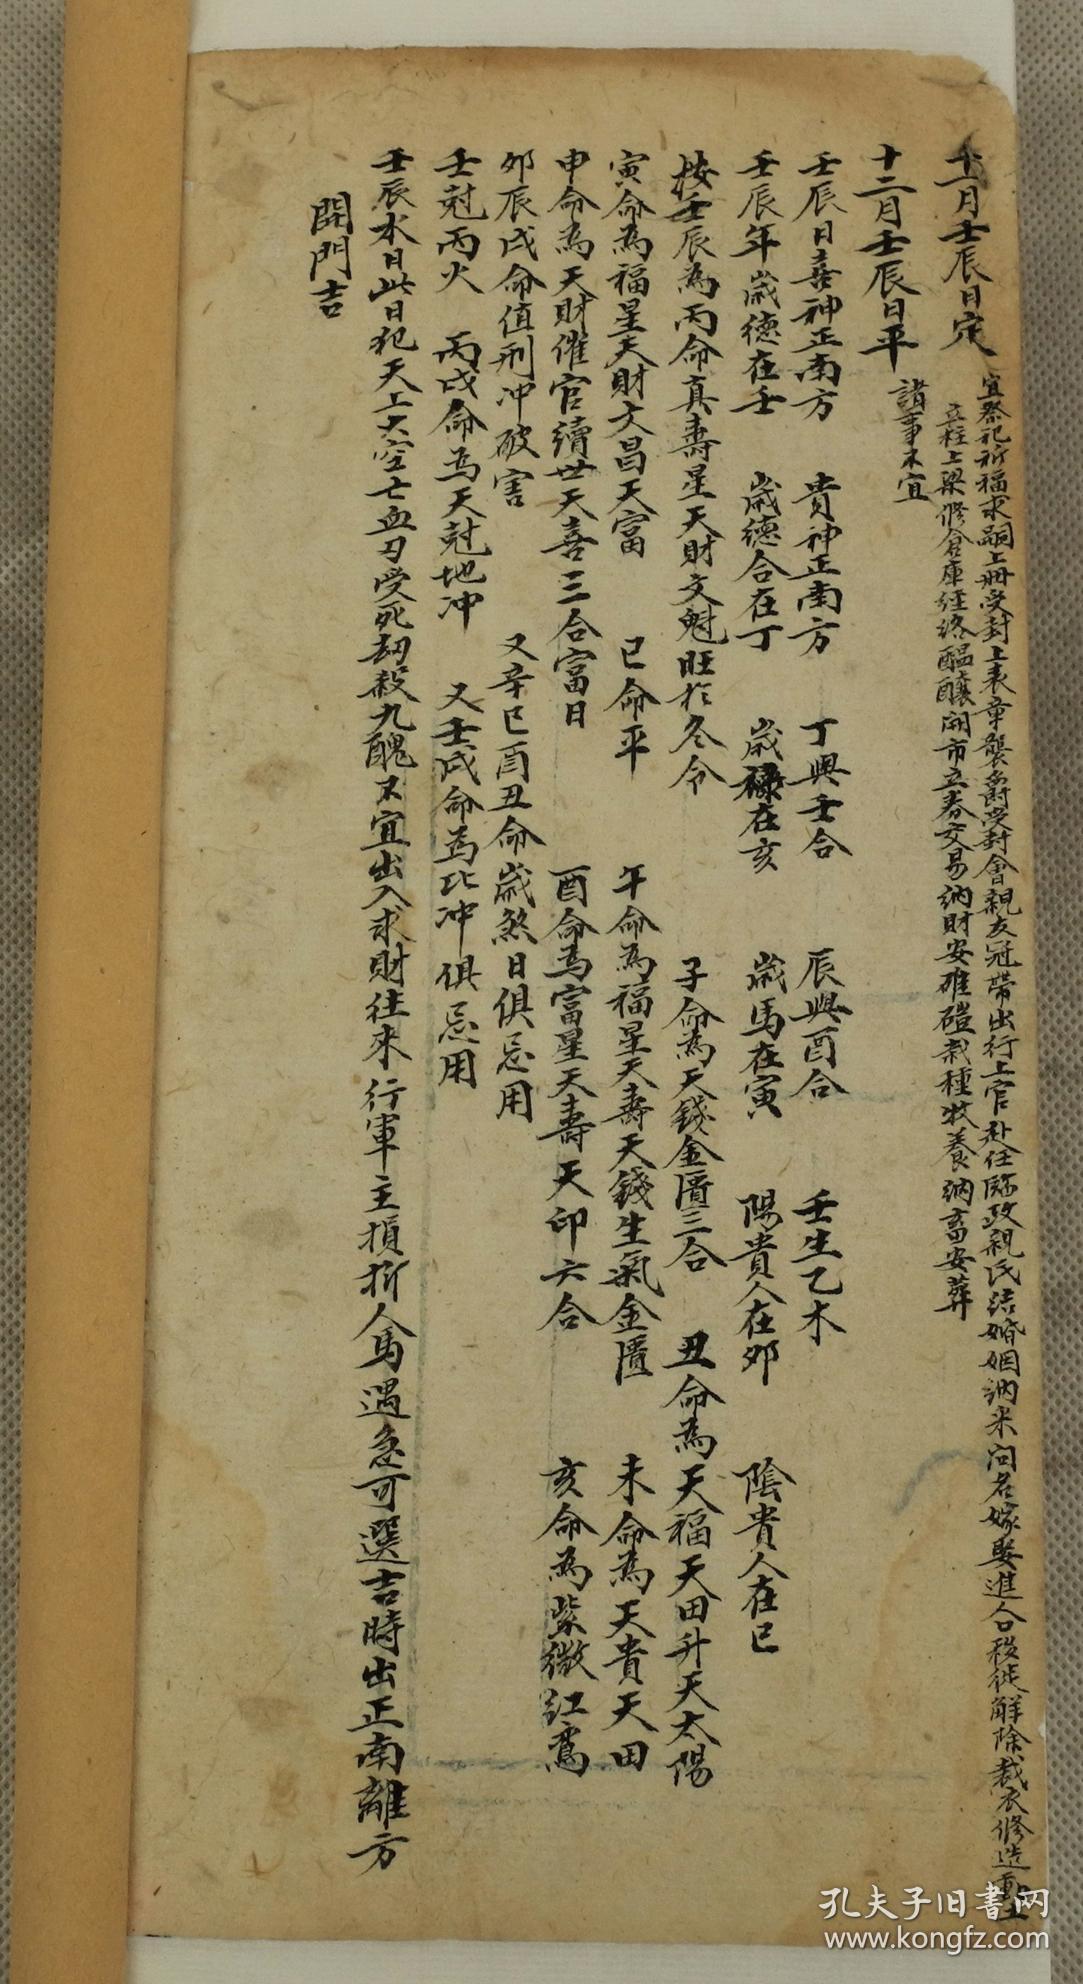 十一月壬辰日定
宜祭祀祈福求嗣上冊受封上表章襲爵受封會親友冠帶出行上官赴任臨政親民結婚姻納采問名嫁娶進人口移徙解除裁衣修造動土
立柱上梁修倉庫經絡醞釀開市立券交易納財安碓磑栽種牧養納畜安葬
十二月壬辰日平 諸事不宜
壬辰日喜神正南方 貴神正南方 丁與壬合 辰與酉合 壬生乙木
壬辰年歲德在壬 歲德合在丁 歲祿在亥 歲馬在寅 陽貴人在卯 陰貴人在巳
按壬辰為丙命真壽星天財文魁旺於冬令 子命為天錢金匱三合 丑命為天福天田升天太陽
寅命為福星天財文昌天富 巳命平 午命為福星天壽天錢生氣金匱 未命為天貴天田
申命為天財催官續世天喜三合富日 酉命為富星天壽天印六合 亥命為紫微紅鸞
卯辰戌命值刑冲破害 又辛巳酉丑命歲煞日俱忌用
壬尅丙火 丙戌命為天尅地冲 又壬戌命為比冲俱忌用
壬辰水日此日犯天上大空亡血刃受死劫殺九醜不宜出入求財往來行軍主損折人馬遇急可選吉時出正南離方
開門吉
孔夫子旧書网
www.kongfz.com